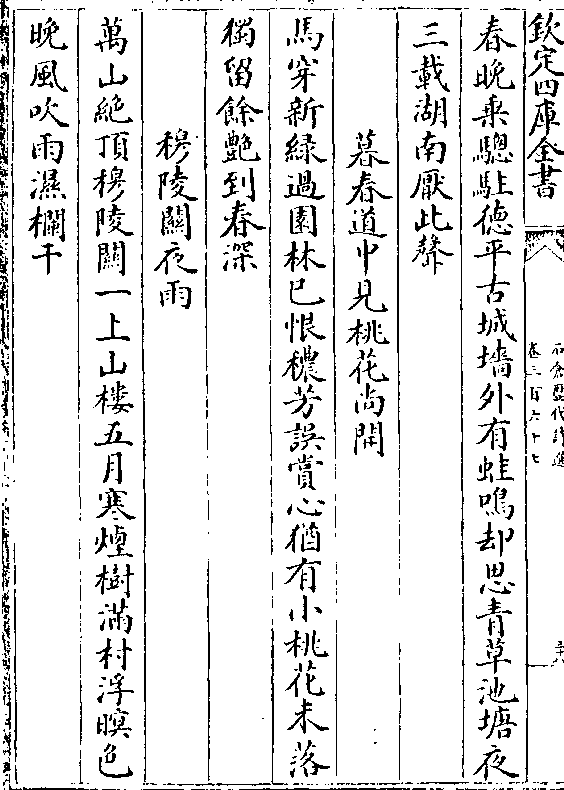 欽定四庫全書
石倉歷代詩選
卷三百六十七
春晚乘驄駐德平古城墻外有蛙鳴却思青草池塘夜
三載湖南厭此聲
暮春道中見桃花尚開
馬穿新綠過園林已恨穠芳誤賞心猶有小桃花未落
獨留餘艷到春深
穆陵關夜雨
萬山絶頂穆陵關一上山樓五月寒煙樹滿村浮暝色
晚風吹雨濕欄干